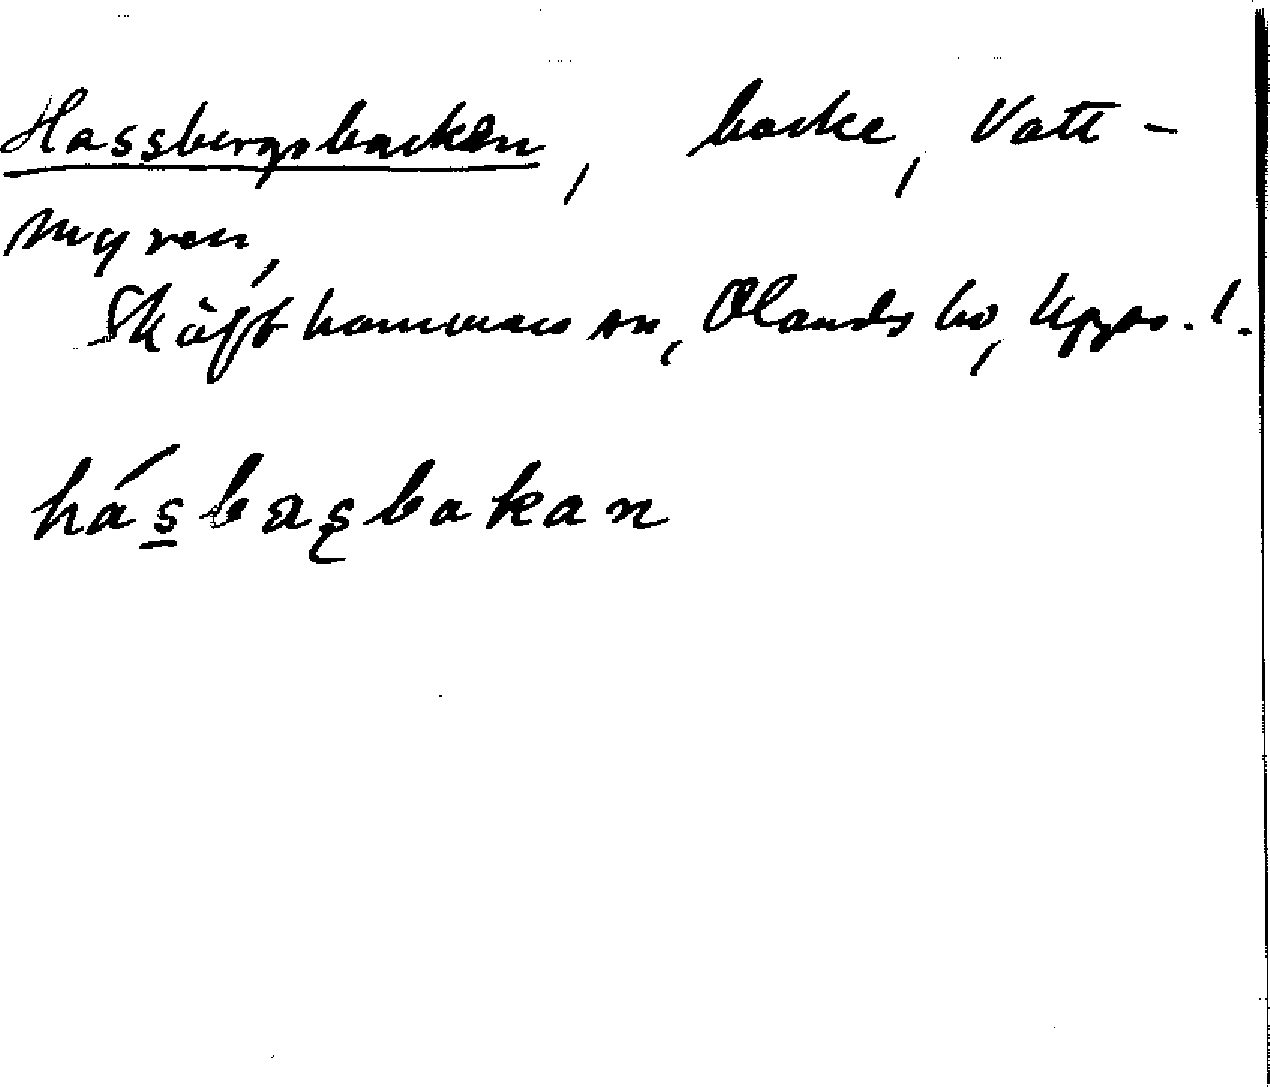 Hassbergsbacken, backe, Vatt-
myren,
Skäfthammars sn, Olands hd, Upps. l.
hásbaʂbakan